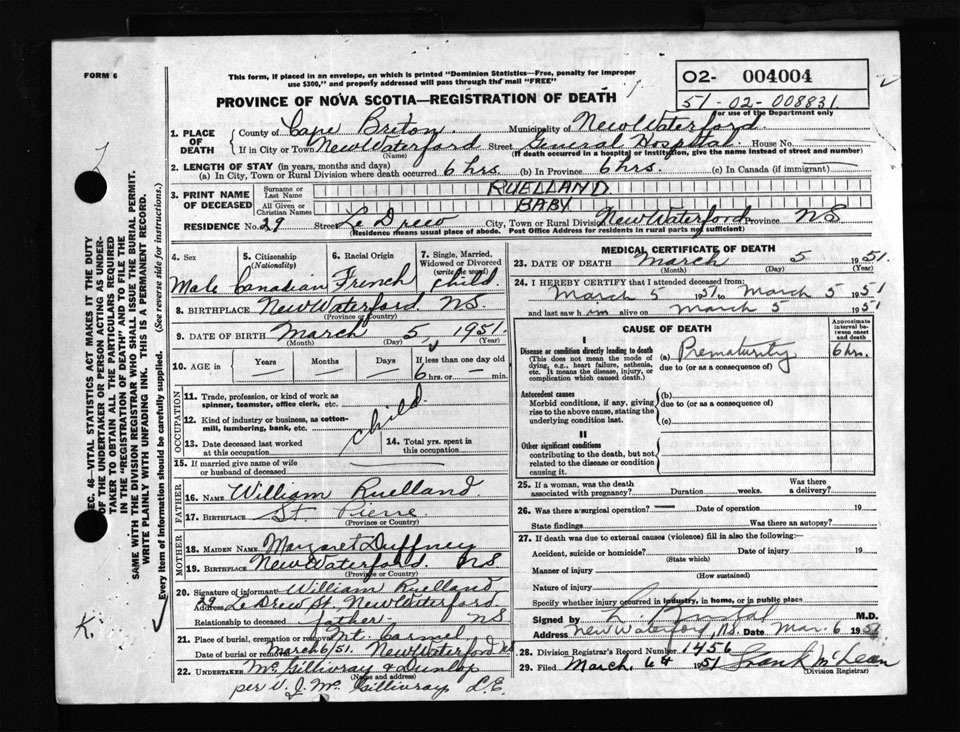 FORM 6
This form, if placed in an envelope, on which is printed "Dominion Statistics—Free, penalty for improper
use $300," and properly addressed will pass through the mail "FREE"
O2- 004004
51-02-008831
For use of the Department only
PROVINCE OF NOVA SCOTIA—REGISTRATION OF DEATH
1. PLACE OF DEATH
County of Cape Breton Municipality of New Waterford
If in City or Town New Waterford Street General Hospital House No.
(Name) (If death occurred in a hospital or institution, give the name instead of street and number)
2. LENGTH OF STAY (in years, months and days)
(a) In City, Town or Rural Division where death occurred 6 hrs. (b) In Province 6 hrs. (c) In Canada (if immigrant)
3. PRINT NAME OF DECEASED
Surname or Last Name RUELLAND
All Given or Christian Names BABY
RESIDENCE No. 29 Street Le Drew City, Town or Rural Division New Waterford Province NS
(Residence means usual place of abode. Post Office Address for residents in rural parts not sufficient)
4. Sex Male
5. Citizenship (Nationality) Canadian
6. Racial Origin French
7. Single, Married, Widowed or Divorced (write the word) child
8. BIRTHPLACE New Waterford NS
(Province or Country)
9. DATE OF BIRTH March 5 1951
(Month) (Day) (Year)
10. AGE in Years — Months — Days — If less than one day old 6 hrs. or — min.
OCCUPATION
11. Trade, profession, or kind of work as
spinner, teamster, office clerk, etc.
12. Kind of industry or business, as cotton-
mill, lumbering, bank, etc.
child
13. Date deceased last worked
at this occupation
14. Total yrs. spent in
this occupation
15. If married give name of wife
or husband of deceased —
FATHER
16. NAME William Ruelland
17. BIRTHPLACE St. Pierre
(Province or Country)
MOTHER
18. MAIDEN NAME Margaret Duffney
19. BIRTHPLACE New Waterford NS
(Province or Country)
20. Signature of informant William Ruelland
Address 29 Le Drew St. New Waterford
Relationship to deceased father NS
21. Place of burial, cremation or removal Mt. Carmel
Date of burial or removal March 6/51. New Waterford NS
22. UNDERTAKER McGillivray & Dunlop
(Name and address)
per V. J. McGillivray L.E.
MEDICAL CERTIFICATE OF DEATH
23. DATE OF DEATH March 5 1951
(Month) (Day) (Year)
24. I HEREBY CERTIFY that I attended deceased from:
March 5 1951 to March 5 1951
and last saw him alive on March 5 1951
CAUSE OF DEATH
Approximate interval between onset and death
I
Disease or condition directly leading to death
(This does not mean the mode of
dying, e.g., heart failure, asthenia,
etc. It means the disease, injury, or
complication which caused death.)
(a) Prematurity 6 hrs.
due to (or as a consequence of)
Antecedent causes
Morbid conditions, if any, giving
rise to the above cause, stating the
underlying condition last.
(b)
due to (or as a consequence of)
(c)
II
Other significant conditions
contributing to the death, but not
related to the disease or condition
causing it.
25. If a woman, was the death
associated with pregnancy? Duration weeks. Was there
a delivery?
26. Was there a surgical operation? — Date of operation 19
State findings Was there an autopsy?
27. If death was due to external causes (violence) fill in also the following:—
Accident, suicide or homicide? Date of injury 19
(State which)
Manner of injury
(How sustained)
Nature of injury
Specify whether injury occurred in industry, in home, or in public place
Signed by M.D.
Address New Waterford, N.S. Date Mar. 6 1951
28. Division Registrar's Record Number 1456
29. Filed March 6th 1951 Frank McLean
(Division Registrar)
SEC. 46—VITAL STATISTICS ACT MAKES IT THE DUTY
OF THE UNDERTAKER OR PERSON ACTING AS UNDER-
TAKER TO OBTAIN ALL THE PARTICULARS REQUIRED
IN THE "REGISTRATION OF DEATH" AND TO FILE THE
SAME WITH THE DIVISION REGISTRAR WHO SHALL ISSUE THE BURIAL PERMIT.
WRITE PLAINLY WITH UNFADING INK. THIS IS A PERMANENT RECORD.
Every item of information should be carefully supplied. (See reverse side for instructions.)
K.